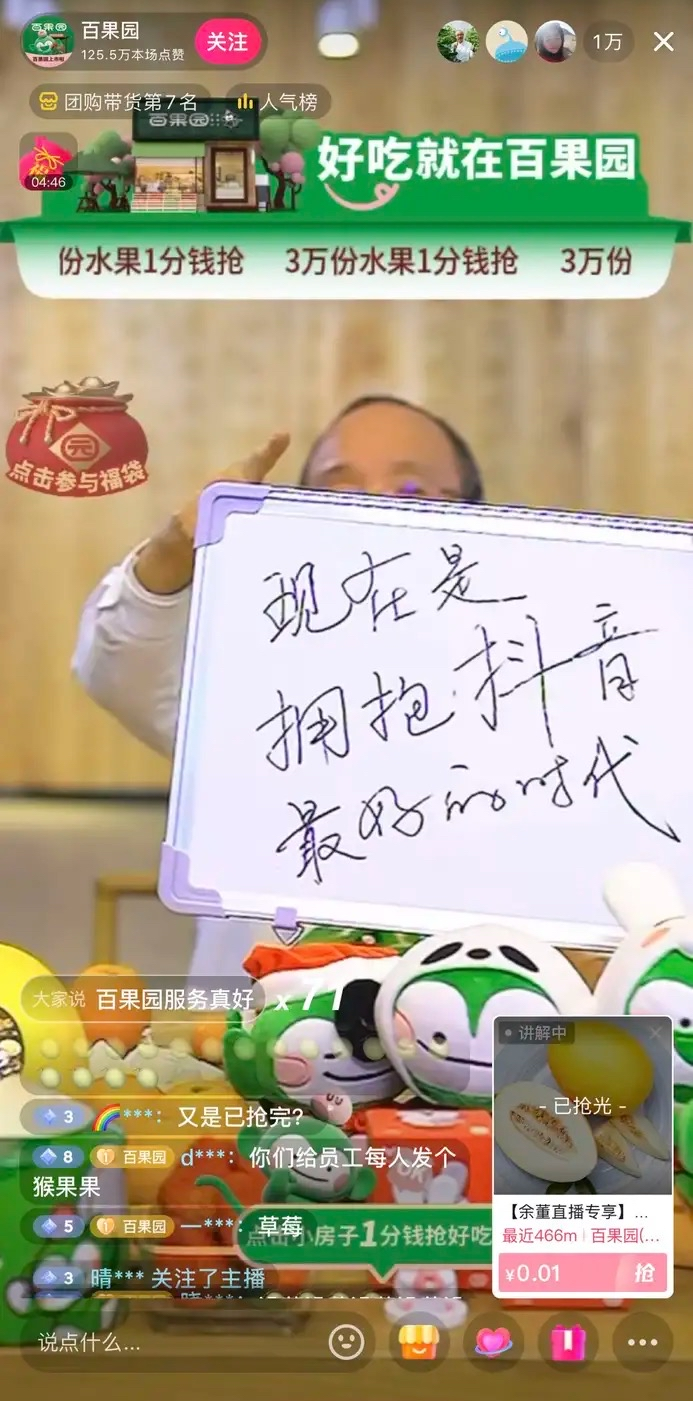 百果园
125.5万本场点赞
关注
1万
团购带货第7名
人气榜
百果园
04:46
好吃就在百果园
份水果1分钱抢 3万份水果1分钱抢 3万份
点击参与福袋
现在是
拥抱抖音
最好的时代
大家说 百果园服务真好 x 71
讲解中
- 已抢光 -
3 🌈***： 又是已抢完?
8 百果园 d***： 你们给员工每人发个
猴果果
5 百果园 一***： 草莓
点击小房子1分钱抢好吃
3 晴*** 关注了主播
【余董直播专享】...
最近466m | 百果园(...
¥0.01 抢
说点什么...